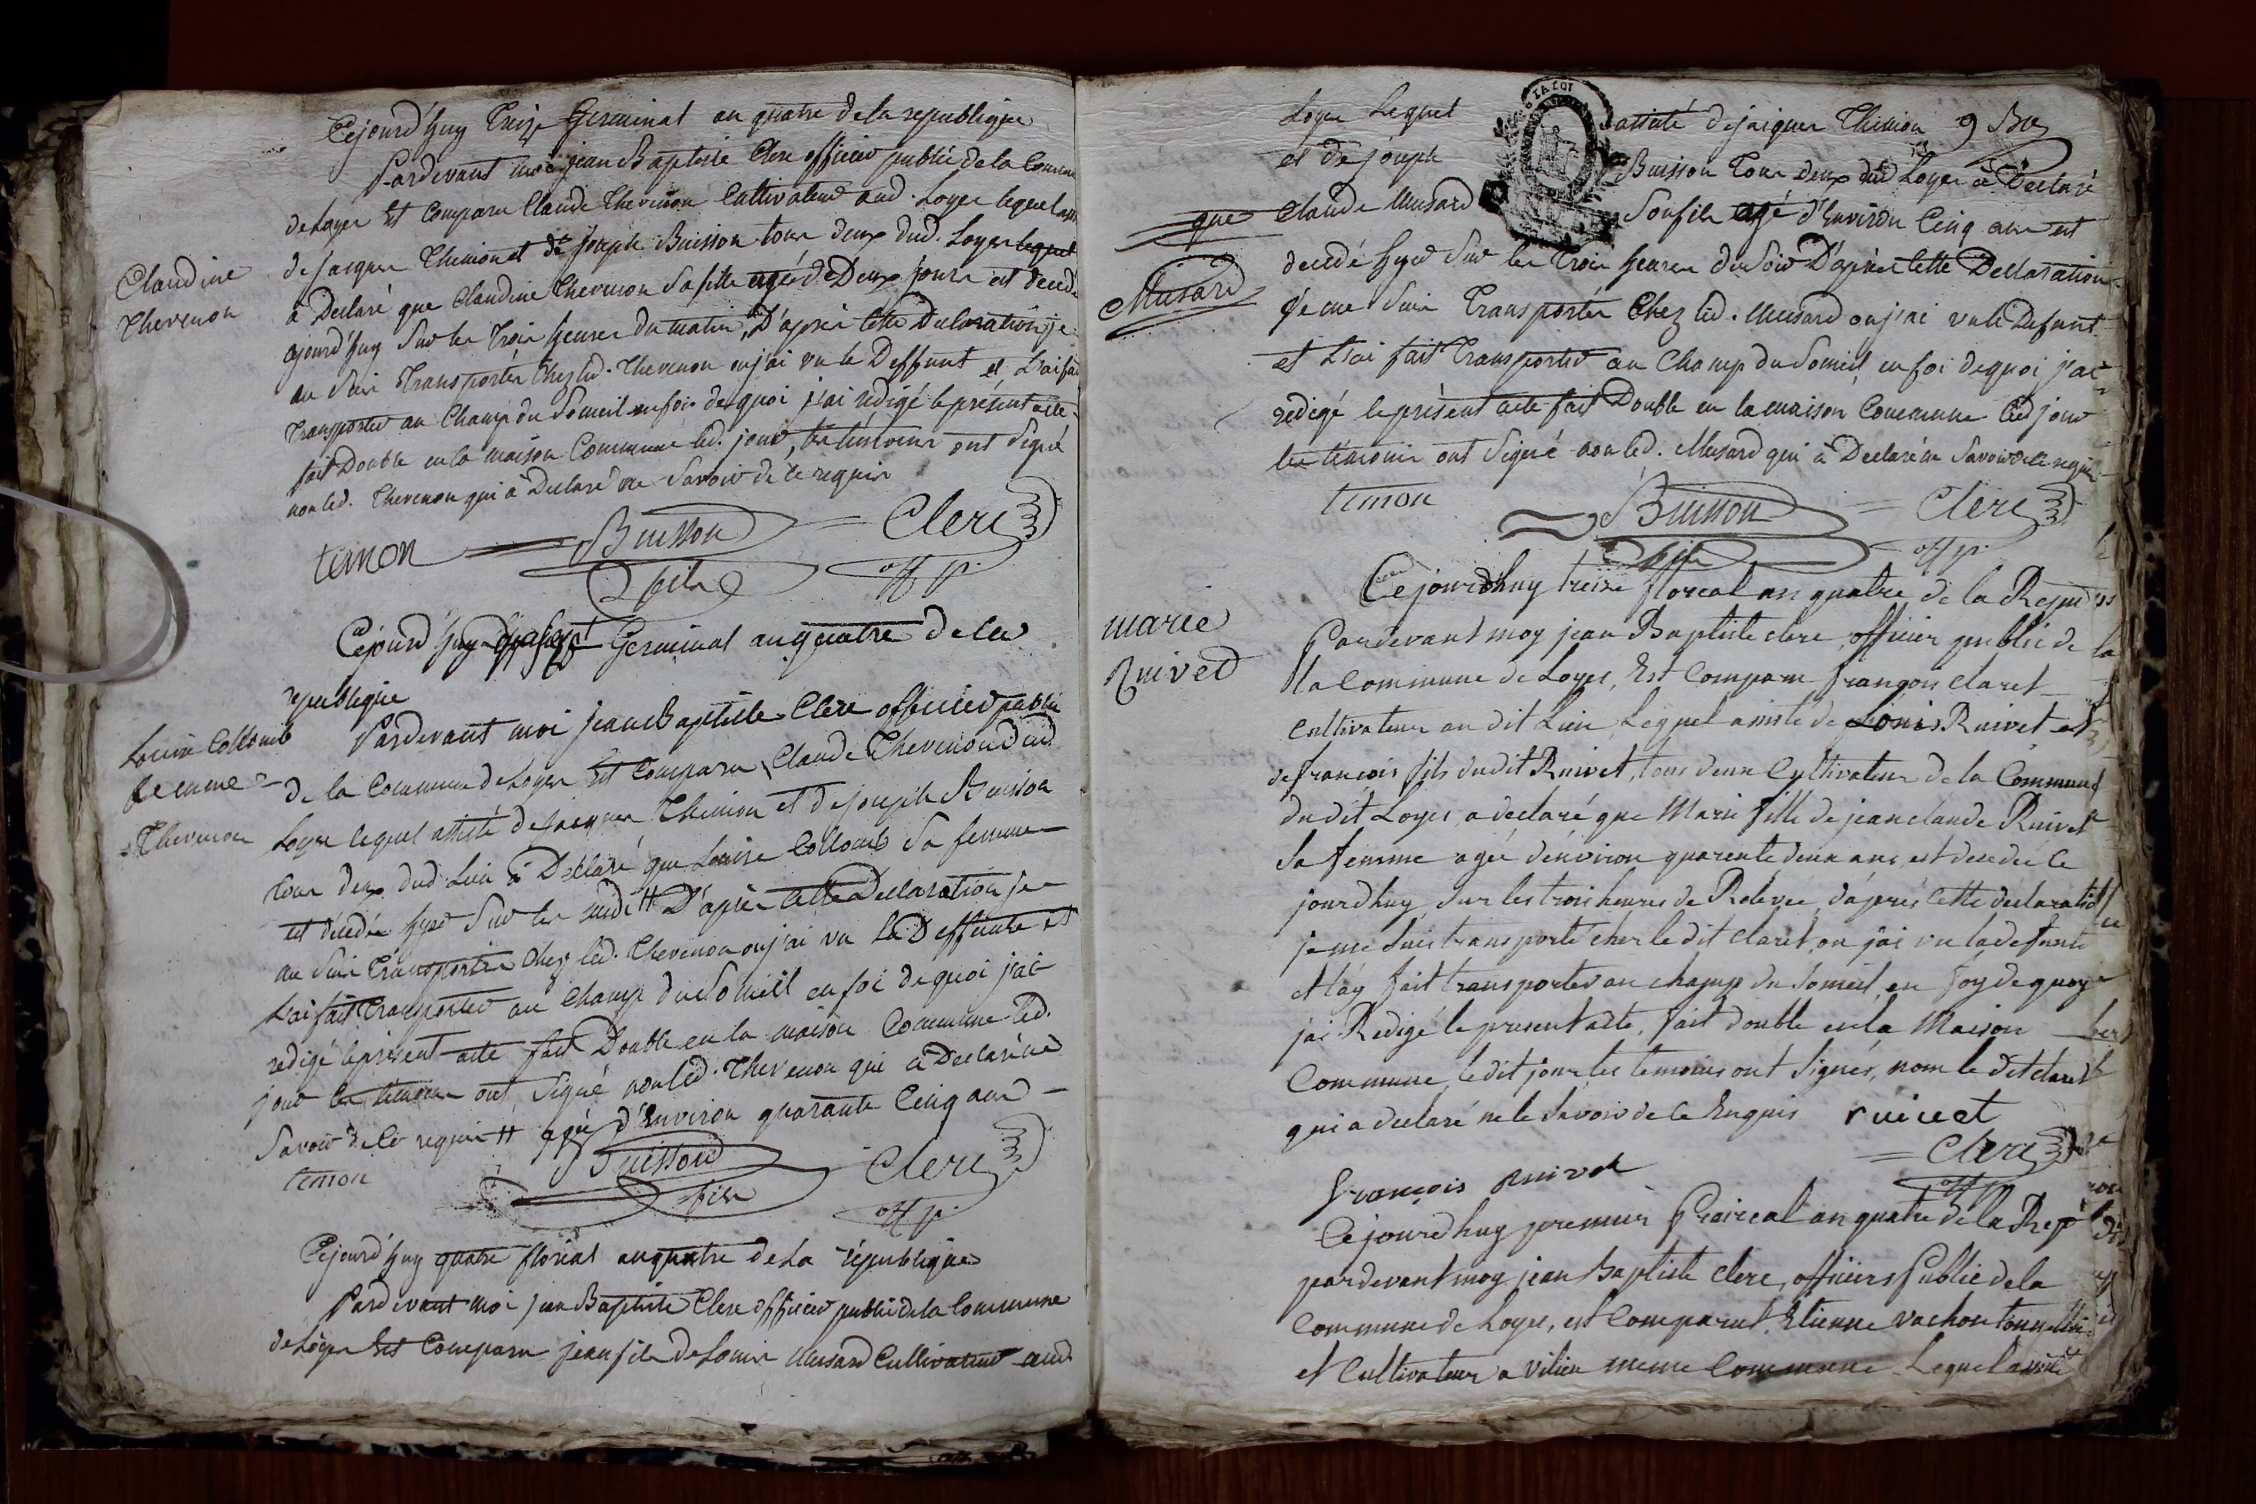 Cejourd'huy Treize Germinal an quatre de la republique
Pardevant moi jean Baptiste Clerc officier public de la Commune
de Loyes Est Comparu Claude Thevenon Cultivateur aud. Loyes lequel assi
Claudine
Thevenon
de Jacques Themon et de Joseph Buisson tous deux dud. Loyes lequel
à Declaré que Claudine Thevenon Sa fille agée de Deux jours est decedé
ajourd'huy Sur les Trois heures du matin, D'après cette Declaration je
me Suis Transportér Chez led. Thevenon ou j'ai vu le Deffunt et L'ai fai
Transporter au Champ du Someil en foi de quoi j'ai rédigé le présent acte
fait Double en la maison Commune led. jour, les témoins ont Signé
non led. Thevenon qui à Declaré ne Savoir de ce requis
temon Buisson Clerc
fils off p.
Cejourd'huy Germinal an quatre de la
republique
Louise Collomb
femme
Thevenon
Pardevant moi jean Baptiste Clerc officier public
de la Commune de Loyes Est Comparu Claude Thevenon dud
Loyes lequel assisté de Jacques Themon et de joseph Buisson
tous deux dud Lieu à Declaré que Louise Collomb Sa femme
est décédée hyer Sur les midi # D'après cette Declaration je
me Suis Transportér Chez led. Thevenon ou j'ai vu la Deffunte et
L'ai fait Transporter au Champ du Someil en foi de quoi j'ai
redigé le présent acte fait Double en la maison Commune led.
jour les temoins ont Signé non led. Thevenon qui à Declaré ne
Savoir de ce requis # agé d'Environ quarante Cinq ans
temon Buisson Clerc
fils off p.
Cejourd'huy quatre floréal an quatre de la république
Pardevant moi jean Baptiste Clerc officier public de la Commune
de Loyes Est Comparu jean fils de Louis Musard Cultivateur aud
Loyes Lequel assisté de jacques Themon 9
et de joseph Buisson Tous deux dud Loyes à Declaré
que Claude Musard Son fils agé d'Environ Cinq ans est
Musard
decedé hyer Sur les trois heures du Soir D'après cette Declaration
je me Suis Transportér Chez led. Musard ou j'ai vu le Defunt
et L'ai fait Transporter au Champ du Someil en foi de quoi j'ai
redigé le présent acte fait Double en la maison Commune led jour
les témoins ont Signé non led. Musard qui à Declaré ne Savoir de ce requis
temon Buisson Clerc
fils off p.
Cejourdhuy treize floreal an quatre de la Repu
marie
Ruivet
Pardevant moy jean Baptiste clerc, officier public de
la Commune de Loyes, Est Comparu françois Claret
cultivateur au dit Lieu, Lequel assisté de Louis Ruivet et
de françois fils dudit Ruivet, tous deux Cultivateur de la Commune
du dit Loyes, a declaré que Marie fille de jean claude Ruivet
Sa femme agée d'environ quarente deux ans, est decedée Ce
jourdhuy Sur les trois heures de Relevée, d'après Cette declaration
je me Suis transporté chez le dit claret, ou j'ai vu la defunte
et l'ay fait transporter au champ du Someil, en foy de quoy
jai Redigé le present acte, fait double en la Maison
Commune, le dit jour les temoins ont Signés, nom le dit claret
qui a declaré ne le Savoir de ce Enquis ruivet
Clerc
françois ruivet off p.
Cejourdhuy premier Prairéal an quatre de la Rep
pardevant moy jean Baptiste clerc, officiers Public de la
Commune de Loyes, est Comparut, Etienne Vachon
et Cultivateur a Vilieu meme Commune Lequel assisté